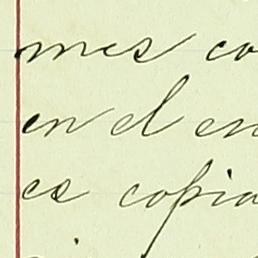 mes co
en el en
es copia